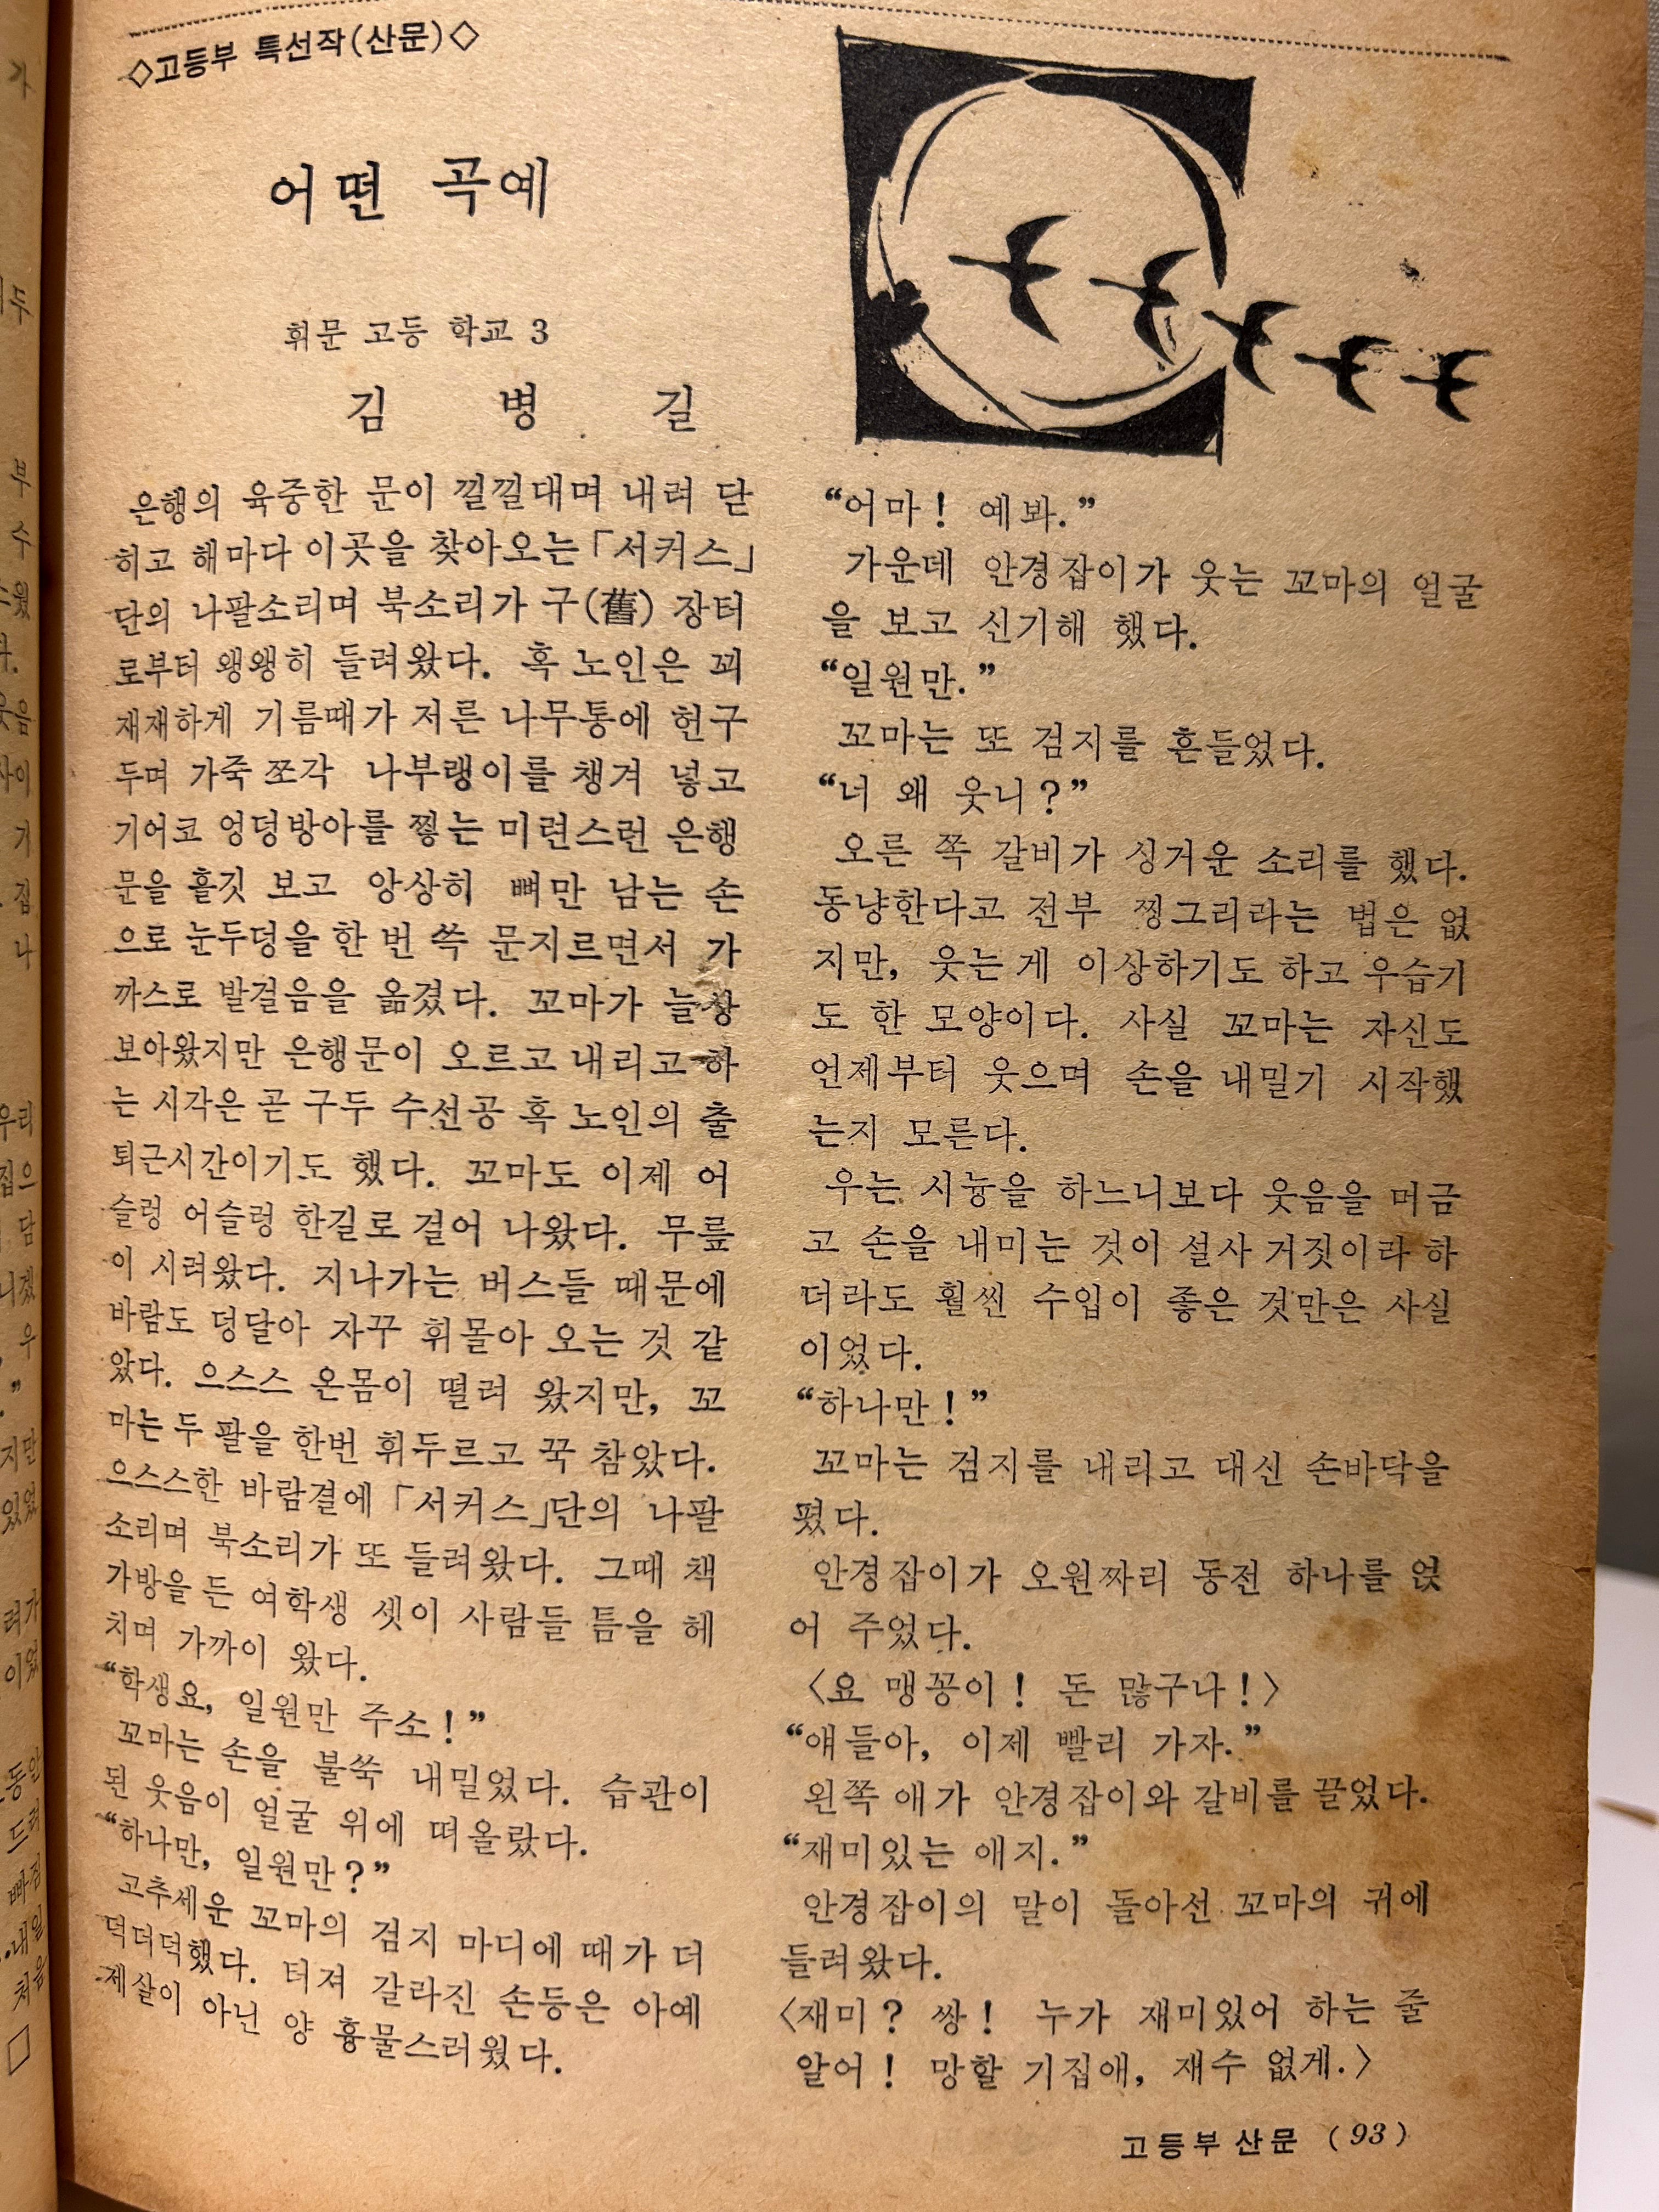 ◇고등부 특선작(산문)◇
어떤 곡예
휘문 고등 학교 3
김 병 길
은행의 육중한 문이 낄낄대며 내려 닫
히고 해마다 이곳을 찾아오는 「서커스」
단의 나팔소리며 북소리가 구(舊) 장터
로부터 왱왱히 들려왔다. 혹 노인은 꾀
재재하게 기름때가 저른 나무통에 헌구
두며 가죽 쪼각 나부랭이를 챙겨 넣고
기어코 엉덩방아를 찧는 미련스런 은행
문을 흘깃 보고 앙상히 뼈만 남는 손
으로 눈두덩을 한 번 쓱 문지르면서 가
까스로 발걸음을 옮겼다. 꼬마가 늘상
보아왔지만 은행문이 오르고 내리고 하
는 시각은 곧 구두 수선공 혹 노인의 출
퇴근시간이기도 했다. 꼬마도 이제 어
슬렁 어슬렁 한길로 걸어 나왔다. 무릎
이 시려왔다. 지나가는 버스들 때문에
바람도 덩달아 자꾸 휘몰아 오는 것 같
았다. 으스스 온몸이 떨려 왔지만, 꼬
마는 두 팔을 한번 휘두르고 꾹 참았다.
으스스한 바람결에 「서커스」단의 나팔
소리며 북소리가 또 들려왔다. 그때 책
가방을 든 여학생 셋이 사람들 틈을 헤
치며 가까이 왔다.
“학생요, 일원만 주소!”
꼬마는 손을 불쑥 내밀었다. 습관이
된 웃음이 얼굴 위에 떠올랐다.
“하나만, 일원만?”
고추세운 꼬마의 검지 마디에 때가 더
덕더덕했다. 터져 갈라진 손등은 아예
제살이 아닌 양 흉물스러웠다.
“어마! 예봐.”
가운데 안경잡이가 웃는 꼬마의 얼굴
을 보고 신기해 했다.
“일원만.”
꼬마는 또 검지를 흔들었다.
“너 왜 웃니?”
오른 쪽 갈비가 싱거운 소리를 했다.
동냥한다고 전부 찡그리라는 법은 없
지만, 웃는 게 이상하기도 하고 우습기
도 한 모양이다. 사실 꼬마는 자신도
언제부터 웃으며 손을 내밀기 시작했
는지 모른다.
우는 시늉을 하느니보다 웃음을 머금
고 손을 내미는 것이 설사 거짓이라 하
더라도 훨씬 수입이 좋은 것만은 사실
이었다.
“하나만!”
꼬마는 검지를 내리고 대신 손바닥을
폈다.
안경잡이가 오원짜리 동전 하나를 얹
어 주었다.
〈요 맹꽁이! 돈 많구나!〉
“얘들아, 이제 빨리 가자.”
왼쪽 애가 안경잡이와 갈비를 끌었다.
“재미있는 애지.”
안경잡이의 말이 돌아선 꼬마의 귀에
들려왔다.
〈재미? 쌍! 누가 재미있어 하는 줄
알어! 망할 기집애, 재수 없게.〉
고등부 산문 (93)